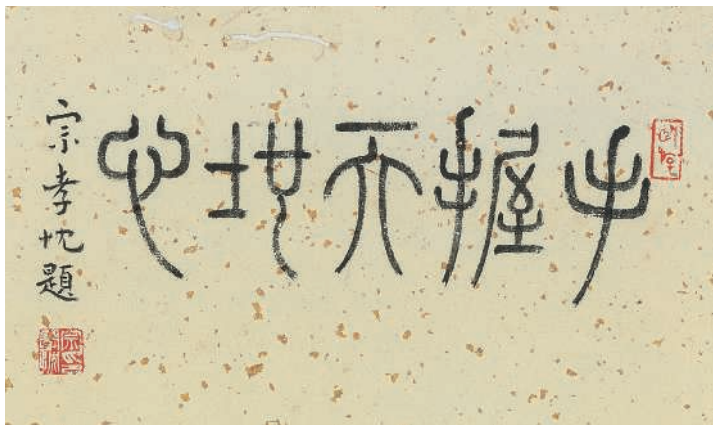 手握天地心
宗孝忱題